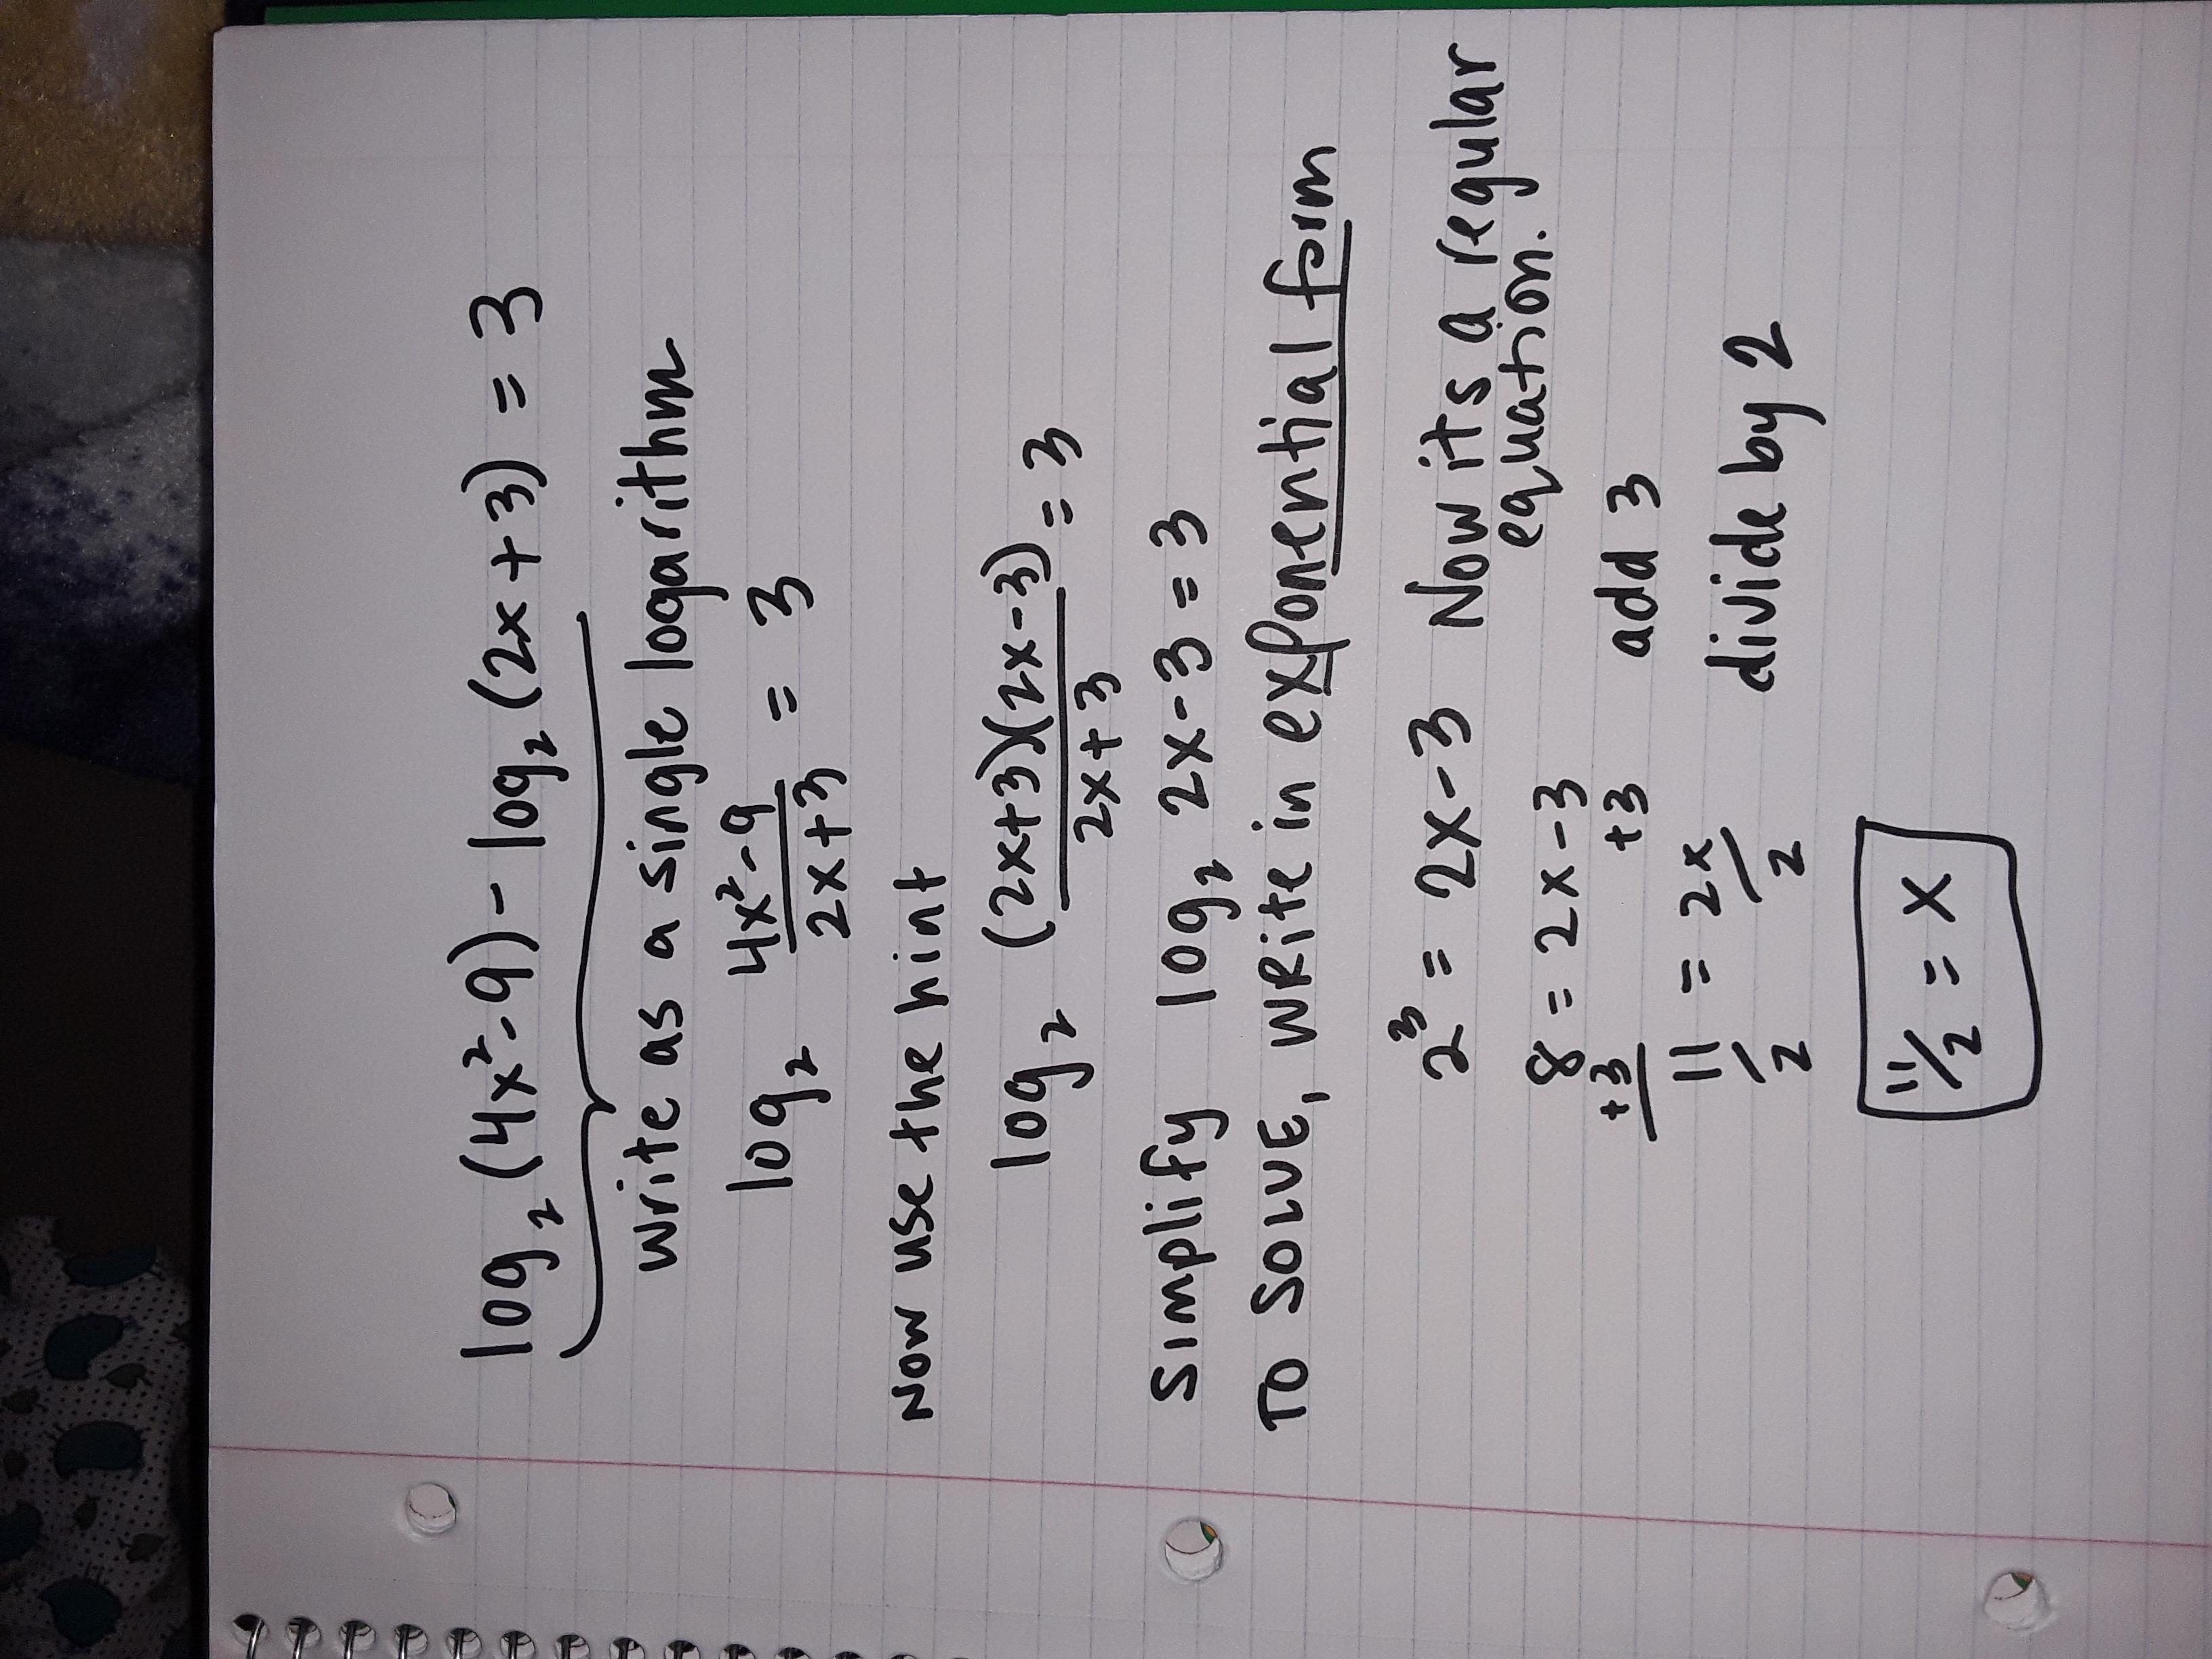 log₂(4x²-9) - log₂(2x+3) = 3
write as a single logarithm
log₂ 4x²-9 / 2x+3 = 3
Now use the hint
log₂ (2x+3)(2x-3) / 2x+3 = 3
Simplify log₂ 2x-3 = 3
To SOLVE, WRite in exponential form
2³ = 2x-3 Now its a regular
equation.
8 = 2x-3
+3 +3 add 3
11/2 = 2x/2 divide by 2
11/2 = x